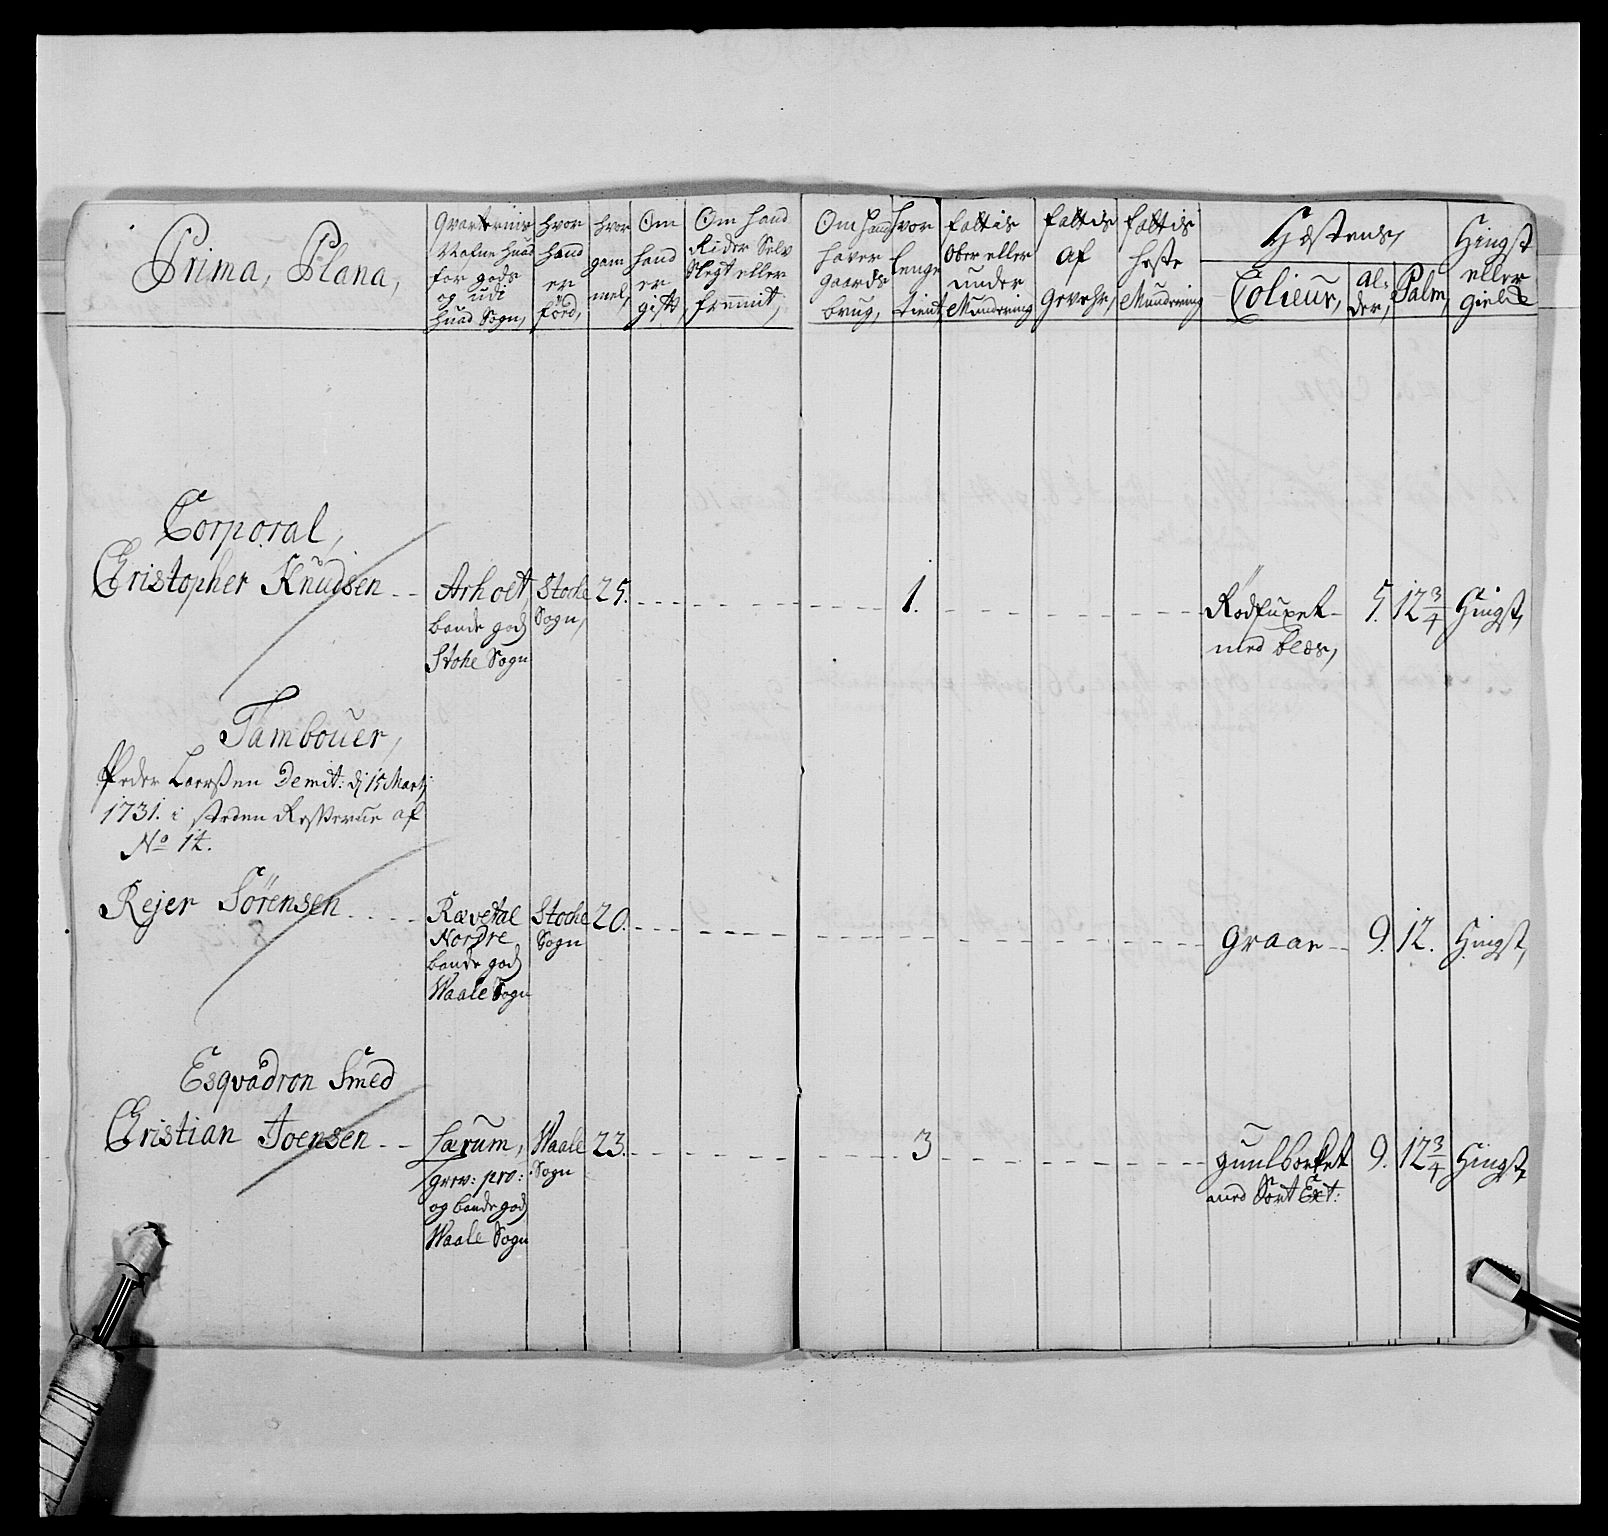 Prima, Plana,
Qvarterints
Nafne huad
for gods
og udi
huad Sogn,
hvor
hand
er
föed,
hvor
gam
mel,
Om
hand
er
gift
Om hand
Rider Selv
Slegt eller
fremmit,
Om hand
haver
gaards
brug,
hvor
lenge
tient
fattis
Ober eller
under
Mundering
fattis
af
gevehr,
fattis
heste
Mundering
Hæstens,
Colieur,
al-
der,
Palm,
Hingst
eller
gield
Corporal,
Christopher Knudsen
Arholt
bonde gods
Stohe Sogn
Stoche
Sogn,
25.
1.
Rödfuxet
med blæs,
5.
12 3/4
Hingst,
Tambouer,
Peder Laerssen Demit: d. 15 Martj
1731. i steden Resterue af
No 14.
Rejer Sörensen
Rævetal
Nordre
bonde gods
Waale Sogn
Stoche
Sogn
20.
graae
9.
12.
Hingst,
Esqvadron Smed
Christian Joensen
Særum,
grev: pro:
og bonde gods
Waale Sogn
Waale
Sogn
23.
3
guulbarket
med Sort Ext:
9.
12 3/4
Hingst,